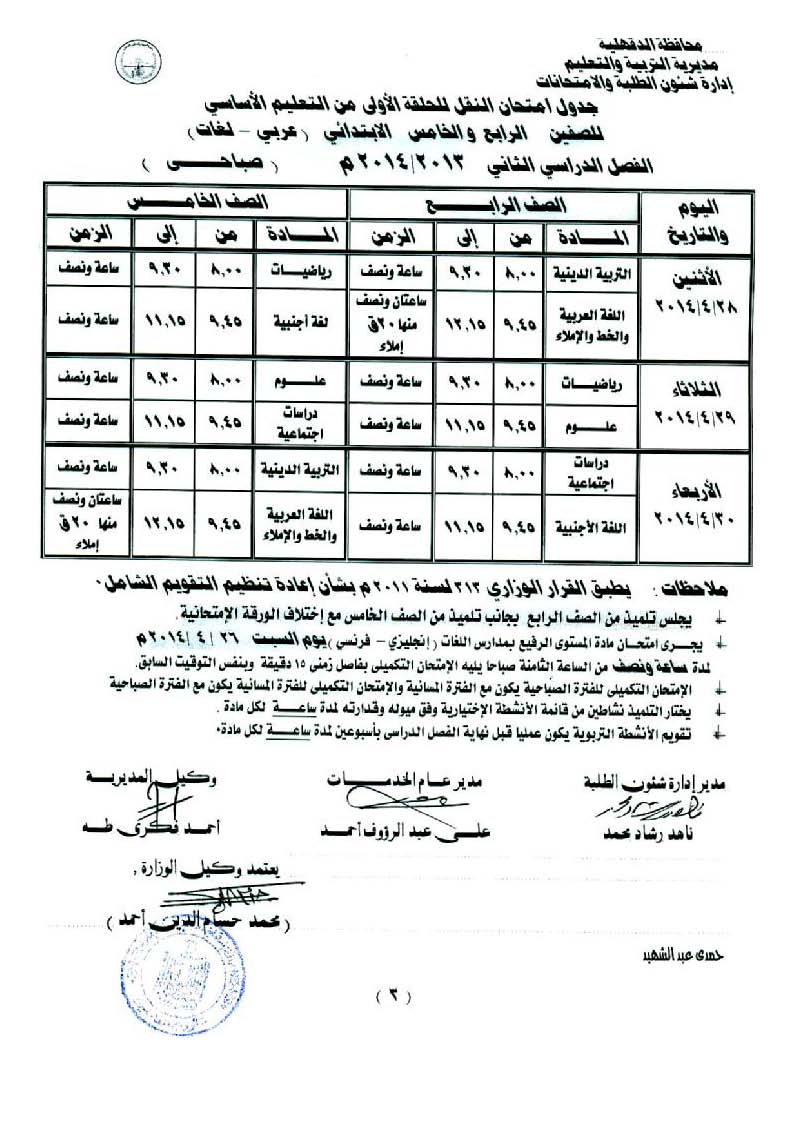 محافظة الدقهلية
مديرية التربية والتعليم
إدارة شئون الطلبة والامتحانات
جدول امتحان النقل للحلقة الأولى من التعليم الأساسي
للصفين الرابع والخامس الابتدائي (عربي - لغات)
الفصل الدراسي الثاني ٢٠١٤/٢٠١٣م (صباحى)
اليوم والتاريخ الصف الرابع الصف الخامس
المادة من إلى الزمن المادة من إلى الزمن
الأثنين ٢٠١٤/٤/٢٨
التربية الدينية ٨,٠٠ ٩,٣٠ ساعة ونصف رياضيات ٨,٠٠ ٩,٣٠ ساعة ونصف
اللغة العربية والخط والإملاء ٩,٤٥ ١٢,١٥ ساعتان ونصف منها ٢٠ق إملاء لغة أجنبية ٩,٤٥ ١١,١٥ ساعة ونصف
الثلاثاء ٢٠١٤/٤/٢٩
رياضيات ٨,٠٠ ٩,٣٠ ساعة ونصف علوم ٨,٠٠ ٩,٣٠ ساعة ونصف
علوم ٩,٤٥ ١١,١٥ ساعة ونصف دراسات اجتماعية ٩,٤٥ ١١,١٥ ساعة ونصف
الأربعاء ٢٠١٤/٤/٣٠
دراسات اجتماعية ٨,٠٠ ٩,٣٠ ساعة ونصف التربية الدينية ٨,٠٠ ٩,٣٠ ساعة ونصف
اللغة الأجنبية ٩,٤٥ ١١,١٥ ساعة ونصف اللغة العربية والخط والإملاء ٩,٤٥ ١٢,١٥ ساعتان ونصف منها ٢٠ق إملاء
ملاحظات : يطبق القرار الوزاري ٣١٣ لسنة ٢٠١١م بشأن إعادة تنظيم التقويم الشامل.
يجلس تلميذ من الصف الرابع بجانب تلميذ من الصف الخامس مع إختلاف الورقة الإمتحانية.
يجرى امتحان مادة المستوى الرفيع بمدارس اللغات (إنجليزي - فرنسي) يوم السبت ٢٦ / ٤ / ٢٠١٤م
لمدة ساعة ونصف من الساعة الثامنة صباحا يليه الإمتحان التكميلى بفاصل زمنى ١٥ دقيقة وبنفس التوقيت السابق.
الإمتحان التكميلى للفترة الصباحية يكون مع الفترة المسائية والإمتحان التكميلى للفترة المسائية يكون مع الفترة الصباحية
يختار التلميذ نشاطين من قائمة الأنشطة الإختيارية وفق ميوله وقدارته لمدة ساعـة لكل مادة .
تقويم الأنشطة التربوية يكون عمليا قبل نهاية الفصل الدراسى بأسبوعين لمدة ساعـة لكل مادة.
مدير إدارة شئون الطلبة مدير عام الخدمات وكيل المديرية
ناهد رشاد محمد على عبد الرؤوف أحمد أحمد فكرى طه
يعتمد وكيل الوزارة ,
(محمد حسام الدين أحمد)
حمدى عبد الشهيد
(٣)